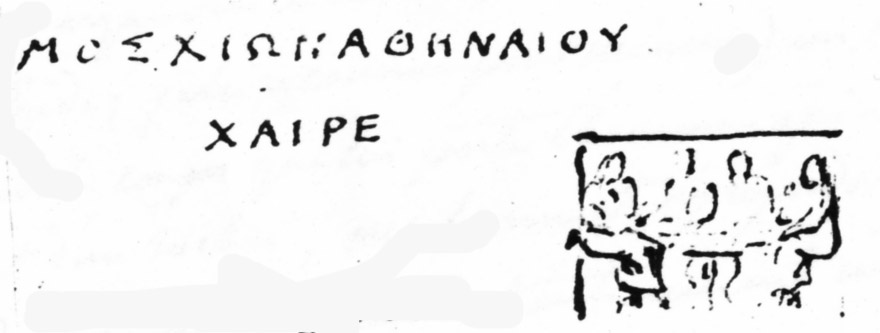 ΜΟΣΧΙΩΝΑΘΗΝΑΙΟΥ
ΧΑΙΡΕ